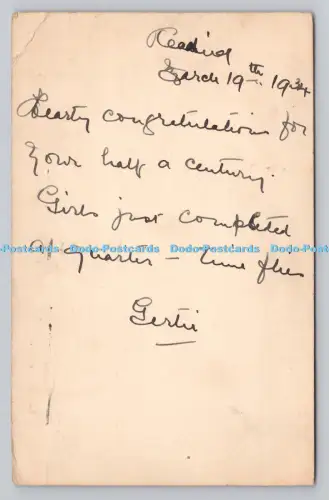 Reading
March 19th 1934
Hearty congratulations for
your half a century.
Girls just completed
a quarter - time flies
Gertie
Dodo-Postcards Dodo-Postcards Dodo-Postcards Dodo-Postcards